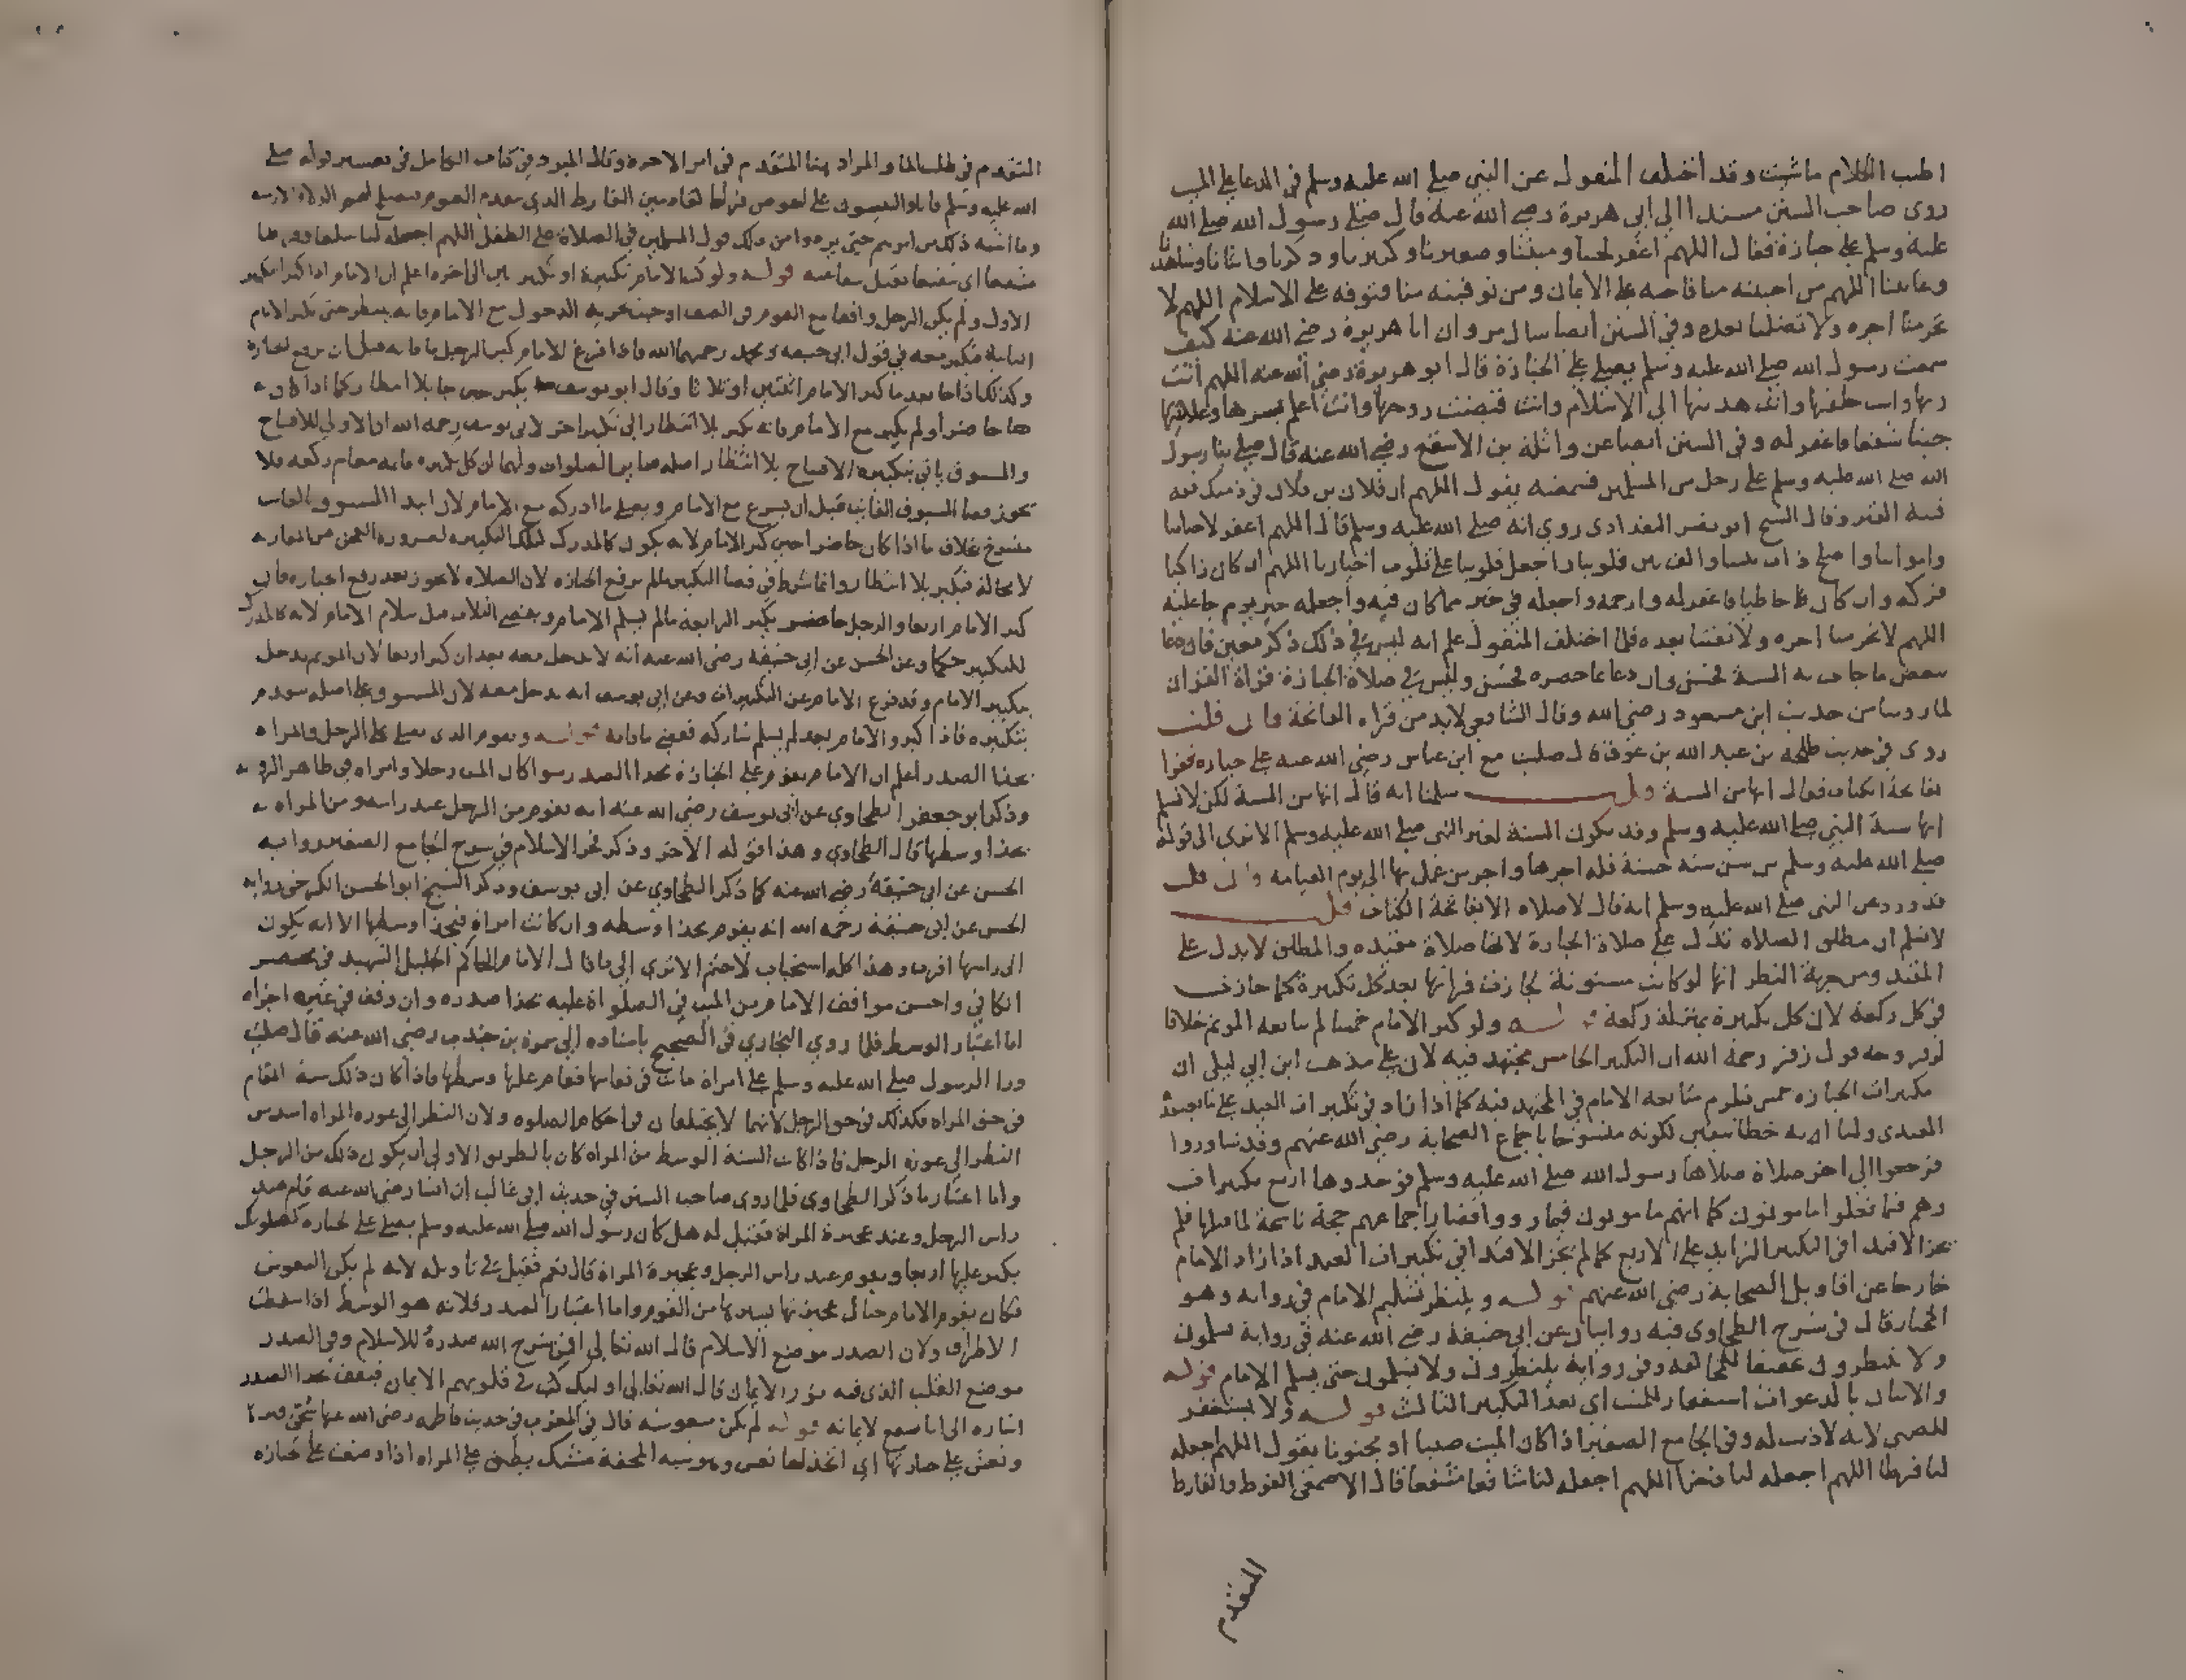 اطيب الكلام ما شئت وقد اختلف المنقول عن النبي صلى الله عليه وسلم في الدعا على الميت
روى صاحب السنن مسندا الى ابي هريرة رضي الله عنه قال صلى رسول الله صلى الله
عليه وسلم على جنازة فقال اللهم اغفر لحينا وميتنا وصغيرنا وكبيرنا وذكرنا وانثانا وشاهدنا
وغائبنا اللهم من احييته منا فاحيه على الايمان ومن توفيته منا فتوفه على الاسلام اللهم لا
تحرمنا اجره ولا تضلنا بعده وفي السنن ايضا سال مروان ابا هريرة رضي الله عنه كيف
سمعت رسول الله صلى الله عليه وسلم يصلي على الجنازة قال ابو هريرة رضي الله عنه اللهم انت
ربها وانت خلقتها وانت هديتها الى الاسلام وانت قبضت روحها وانت اعلم بسرها وعلانيتها
جينا شفعا فاغفر له وفي السنن ايضا عن واثلة بن الاسقع رضي الله عنه قال صلى بنا رسول
الله صلى الله عليه وسلم على رجل من المسلمين فسمعته يقول اللهم ان فلان بن فلان في ذمتك فقه
فتنة القبر وقال الشيخ ابو نصر البغدادي روي انه صلى الله عليه وسلم قال اللهم اغفر لاحيانا
وامواتنا واصلح ذات بيننا والف بين قلوبنا واجعل قلوبنا على قلوب اخيارنا اللهم ان كان زاكيا
فزكه وان كان خاطيا فاغفر له وارحمه واجعله في خير مما كان فيه واجعله خير يوم جا عليه
اللهم لا تحرمنا اجره ولا تفتنا بعده فلما اختلف المنقول علم انه ليس في ذلك ذكر معين فان دعا
ببعض ما جات به السنة فحسن وان دعا بما حضره فحسن وليس في صلاة الجنازة قراة القران
لما روينا من حديث ابن مسعود رضي الله وقال الشافعي لا بد من قراه الفاتحة فان قلت
روى في حديث طلحة بن عبد الله بن عوف قال صليت مع ابن عباس رضي الله عنه على جنازه فقرا
بفاتحة الكتاب فقال انها من السنة قلت سلمنا انه قال انها من السنة لكن لا نسلم
انها سنة النبي صلى الله عليه وسلم وقد يكون السنة لغير النبي صلى الله عليه وسلم الا ترى الى قوله
صلى الله عليه وسلم من سن سنة حسنة فله اجرها واجر من عمل بها الى يوم القيامه فان قلت
قد ورد عن النبي صلى الله عليه وسلم انه قال لا صلاه الا بفاتحة الكتاب قلت
لا نسلم ان مطلق الصلاه تدل على صلاة الجنازة لانها صلاة مقيده والمطلق لا يدل على
المقيد ومن جهة النظر انها لو كانت مسنونة لجازت قراتها بعد كل تكبيرة كما جازت
في كل ركعة لان كل تكبيرة بمنزلة ركعة قوله ولو كبر الامام خمسا لم يتابعه الموتم خلافا
لزفر وجه قول زفر رحمه الله ان التكبير الخامس مجتهد فيه لان على مذهب ابن ابي ليلى ان
تكبيرات الجنازه خمس فيلزم متابعه الامام في المجتهد فيه كما اذا زاد في تكبيرات العيد على
المقتدي ولنا انه خطا بيقين لكونه منسوخا باجماع الصحابة رضي الله عنهم وقد تشاوروا
فرجعوا الى اخر صلاة صلاها رسول الله صلى الله عليه وسلم فوجدوها اربع تكبيرات
وهم فيما نقلوا مامونون كما انهم مامونون فيما رووا فصار اجماعهم حجة ناسخة لما قبلها فلم
يجز الاقتدا في التكبير الزايد على الاربع كما لم يجز الاقتدا في تكبيرات العيد اذا زاد الامام
خارجا عن اقاويل الصحابة رضي الله عنهم قوله وينتظر تسليم الامام في رواية وهو
المختار قال في شرح الطحاوي فيه روايتان عن ابي حنيفة رضي الله عنه في رواية يسلمون
ولا ينتظرون تحقيقا للمخالفه وفي رواية ينتظرون ولا يسلمون حتى يسلم الامام قوله
والاتيان بالدعوات استغفار للميت اي بعد التكبير الثالث قوله ولا يستغفر
للصبي لانه لا ذنب له وفي الجامع الصغير اذا كان الميت صبيا او مجنونا يقول اللهم اجعله
لنا فرطا اللهم اجعله لنا ذخرا اللهم اجعله لنا شافعا مشفعا قال الاصمعي الفرط والفارط
المتقدم
المتقدم في طلب الماء والمراد هنا المتقدم في امر الاخرة وقال المبرد في كتاب الكامل في تفسير قوله صلى
الله عليه وسلم
وما اشبه ذلك من امرهم حتى يردوا ومن ذلك قول المسلمين في الصلاة على الطفل اللهم اجعله لنا سلفا وفرطا
مشفعا اي شفيعا تقبل شفاعته قوله ولو كبر الامام تكبيرة او تكبيرتين الى اخره اعلم ان الامام اذا كبر التكبير
الاول ولم يكن الرجل واقفا مع القوم في الصف اوحين تحريمه الدخول مع الامام فانه ينتظر حتى يكبر الامام
الثانية فيكبر معه في قول ابي حنيفه ومحمد رحمهما الله فاذا فرغ الامام كبر الرجل ما فاته قبل ان ترفع الجنازة
وكذلك اذا جا بعد ما كبر الامام اثنتين او ثلاثا وقال ابو يوسف يكبر حين جا بلا انتظار كما اذا كان
حاضرا ولم يكبر مع الامام فانه يكبر بلا انتظار الى تكبير اخر لابي يوسف رحمه الله ان الاولى للافتتاح
والمسبوق ياتي بتكبيرة الافتتاح بلا انتظار اصله ساير الصلوات ولهما ان كل تكبيره قايمه مقام ركعه فلا
يجوز قضا المسبوق الفايت قبل ان يشرع مع الامام ويصلي ما ادركه مع الامام لان ابتدا المسبوق بالفايت
منسوخ بخلاف ما اذا كان حاضرا حين كبر الامام لانه يكون كالمدرك لتلك التكبيره لضروره العجز عن المقارنه
لا محالة فيكبر بلا انتظار وانما شرط في قضا التكبير ما لم ترفع الجنازه لان الصلاه لا تجوز بعد رفع الجنازه فان
كبر الامام اربعا والرجل حاضر يكبر الرابعة ما لم يسلم الامام ويقضي الثلاث قبل سلام الامام لانه كالمدرك
للتكبير حكما وعن الحسن عن ابي حنيفة رضي الله عنه انه لا يدخل معه بعد ان كبر اربعا لان الموتم يدخل
بتكبير الامام وقد فرغ الامام عن التكبيرات وعن ابي يوسف انه يدخل معه لان المسبوق على اصله
بتكبيره فاذا كبر والامام بعد لم يسلم شاركه فيقضي ما فاته قوله ويقوم الذي يصلي على الرجل والمراه
بحذا الصدر اعلم ان الامام يقوم على الجنازة بحذا الصدر سوا كان الميت رجلا او امراه في ظاهر الروايه
وذكر ابو جعفر الطحاوي عن ابي يوسف رضي الله عنه انه يقوم من الرجل عند راسه ومن المراه
بحذا وسطها قال الطحاوي وهذا قوله الاخر وذكر فخر الاسلام في شرح الجامع الصغير روايه
الحسن عن ابي حنيفة رضي الله عنه كما ذكر الطحاوي عن ابي يوسف وذكر الشيخ ابو الحسن الكرخي روايه
الحسن عن ابي حنيفة رحمه الله انه يقوم بحذا وسطه وان كانت امراة فبحذا وسطها الا انه يكون
الى راسها اقرب وهذا كله استحباب لا حتم الا ترى الى ما قال الامام الحاكم الجليل الشهيد في مختصر
الكافي واحسن مواقف الامام من الميت في الصلواة عليه بحذا صدره وان وقف في غيره اجزاه
اما اعتبار الوسط فلما روي البخاري في الصحيح باسناده الى سمرة بن جندب رضي الله عنه قال صليت
ورا الرسول صلى الله عليه وسلم على امراة ماتت في نفاسها فقام عليها وسطها فاذا كان ذلك سنة المقام
في حق المراه فكذلك في حق الرجل لانهما لا يختلفان في احكام الصلوه ولان النظر الى عوره المراه اشد من
النظر الى عورة الرجل فاذا كانت السنة الوسط من المراه كان بالطريق الاولى ان يكون ذلك من الرجل
واما اعتبار ما ذكر الطحاوي فلما روى صاحب السنن في حديث ابي غالب ان انسا رضي الله عنه قام عند
راس الرجل وعند عجيزة المراة فقيل له هل كان رسول الله صلى الله عليه وسلم يصلي على الجنازة كصلوتك
يكبر عليها اربعا ويقوم عند راس الرجل وعجيزة المراة قال نعم فقيل في تاويله لانه لم يكن النعوش
فكان يقوم الامام حيال عجيزتها يسترها من القوم واما اعتبار الصدر فلانه هو الوسط اذا اسقطت
الاطراف ولان الصدر موضع الاسلام قال الله تعالى افمن شرح الله صدره للاسلام وفي الصدر
موضع القلب الذي فيه نور الايمان قال الله تعالى اوليك كتب في قلوبهم الايمان فيقف بحذا الصدر
اشاره الى انا نشفع لايمانه قوله لم تكن منعوشه قال في المغرب في حديث فاطمه رضي الله عنها
ونعش على جنازتها اي اتخذ لها نعش وهو شبه المحفة مشبك يطبق على المراه اذا وضعت على جنازه